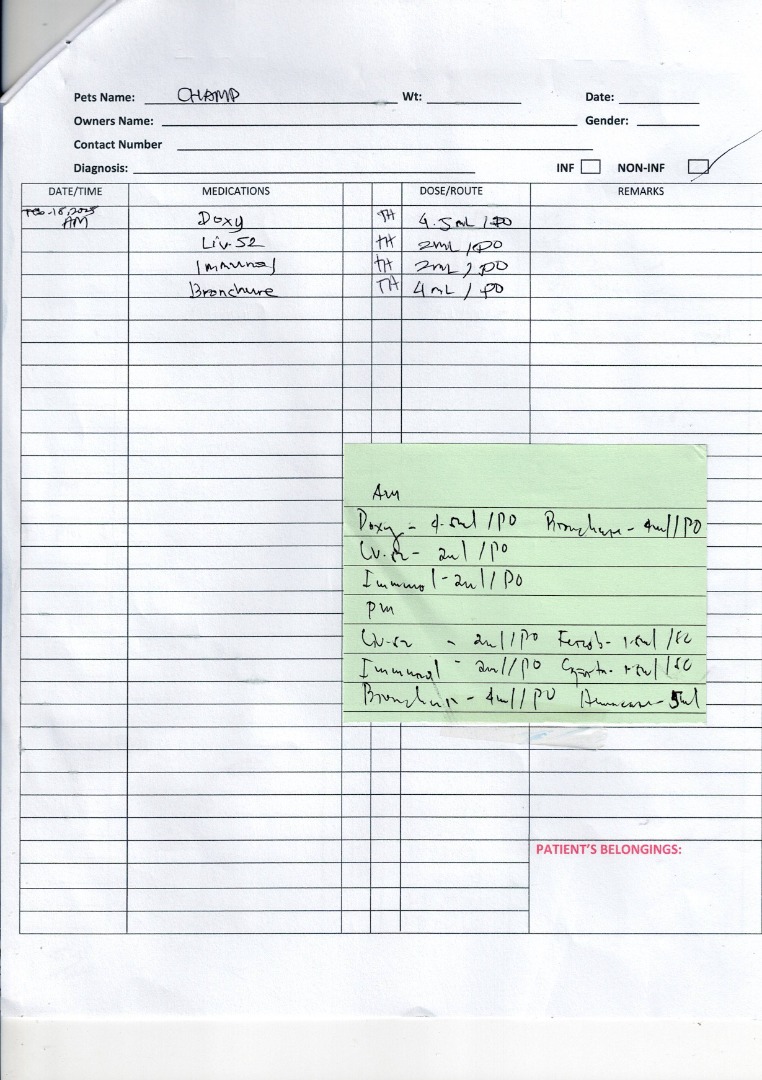 Pets Name: CHAMP Wt: Date:
Owners Name: Gender:
Contact Number
Diagnosis: INF NON-INF
DATE/TIME MEDICATIONS DOSE/ROUTE REMARKS
Feb-18,2025
AM Doxy TH 4.5mL/PO
Liv-52 TH 2mL/PO
Immunol TH 2mL/PO
Bronchure TH 4mL/PO
Am
Doxy - 4.5ml/PO Bronchure - 4ml/PO
Liv-52 - 2ml/PO
Immunol - 2ml/PO
pm
Liv-52 - 2ml/PO
Immunol - 2ml/PO
Bronchure - 4ml/PO 5ml
PATIENT'S BELONGINGS: